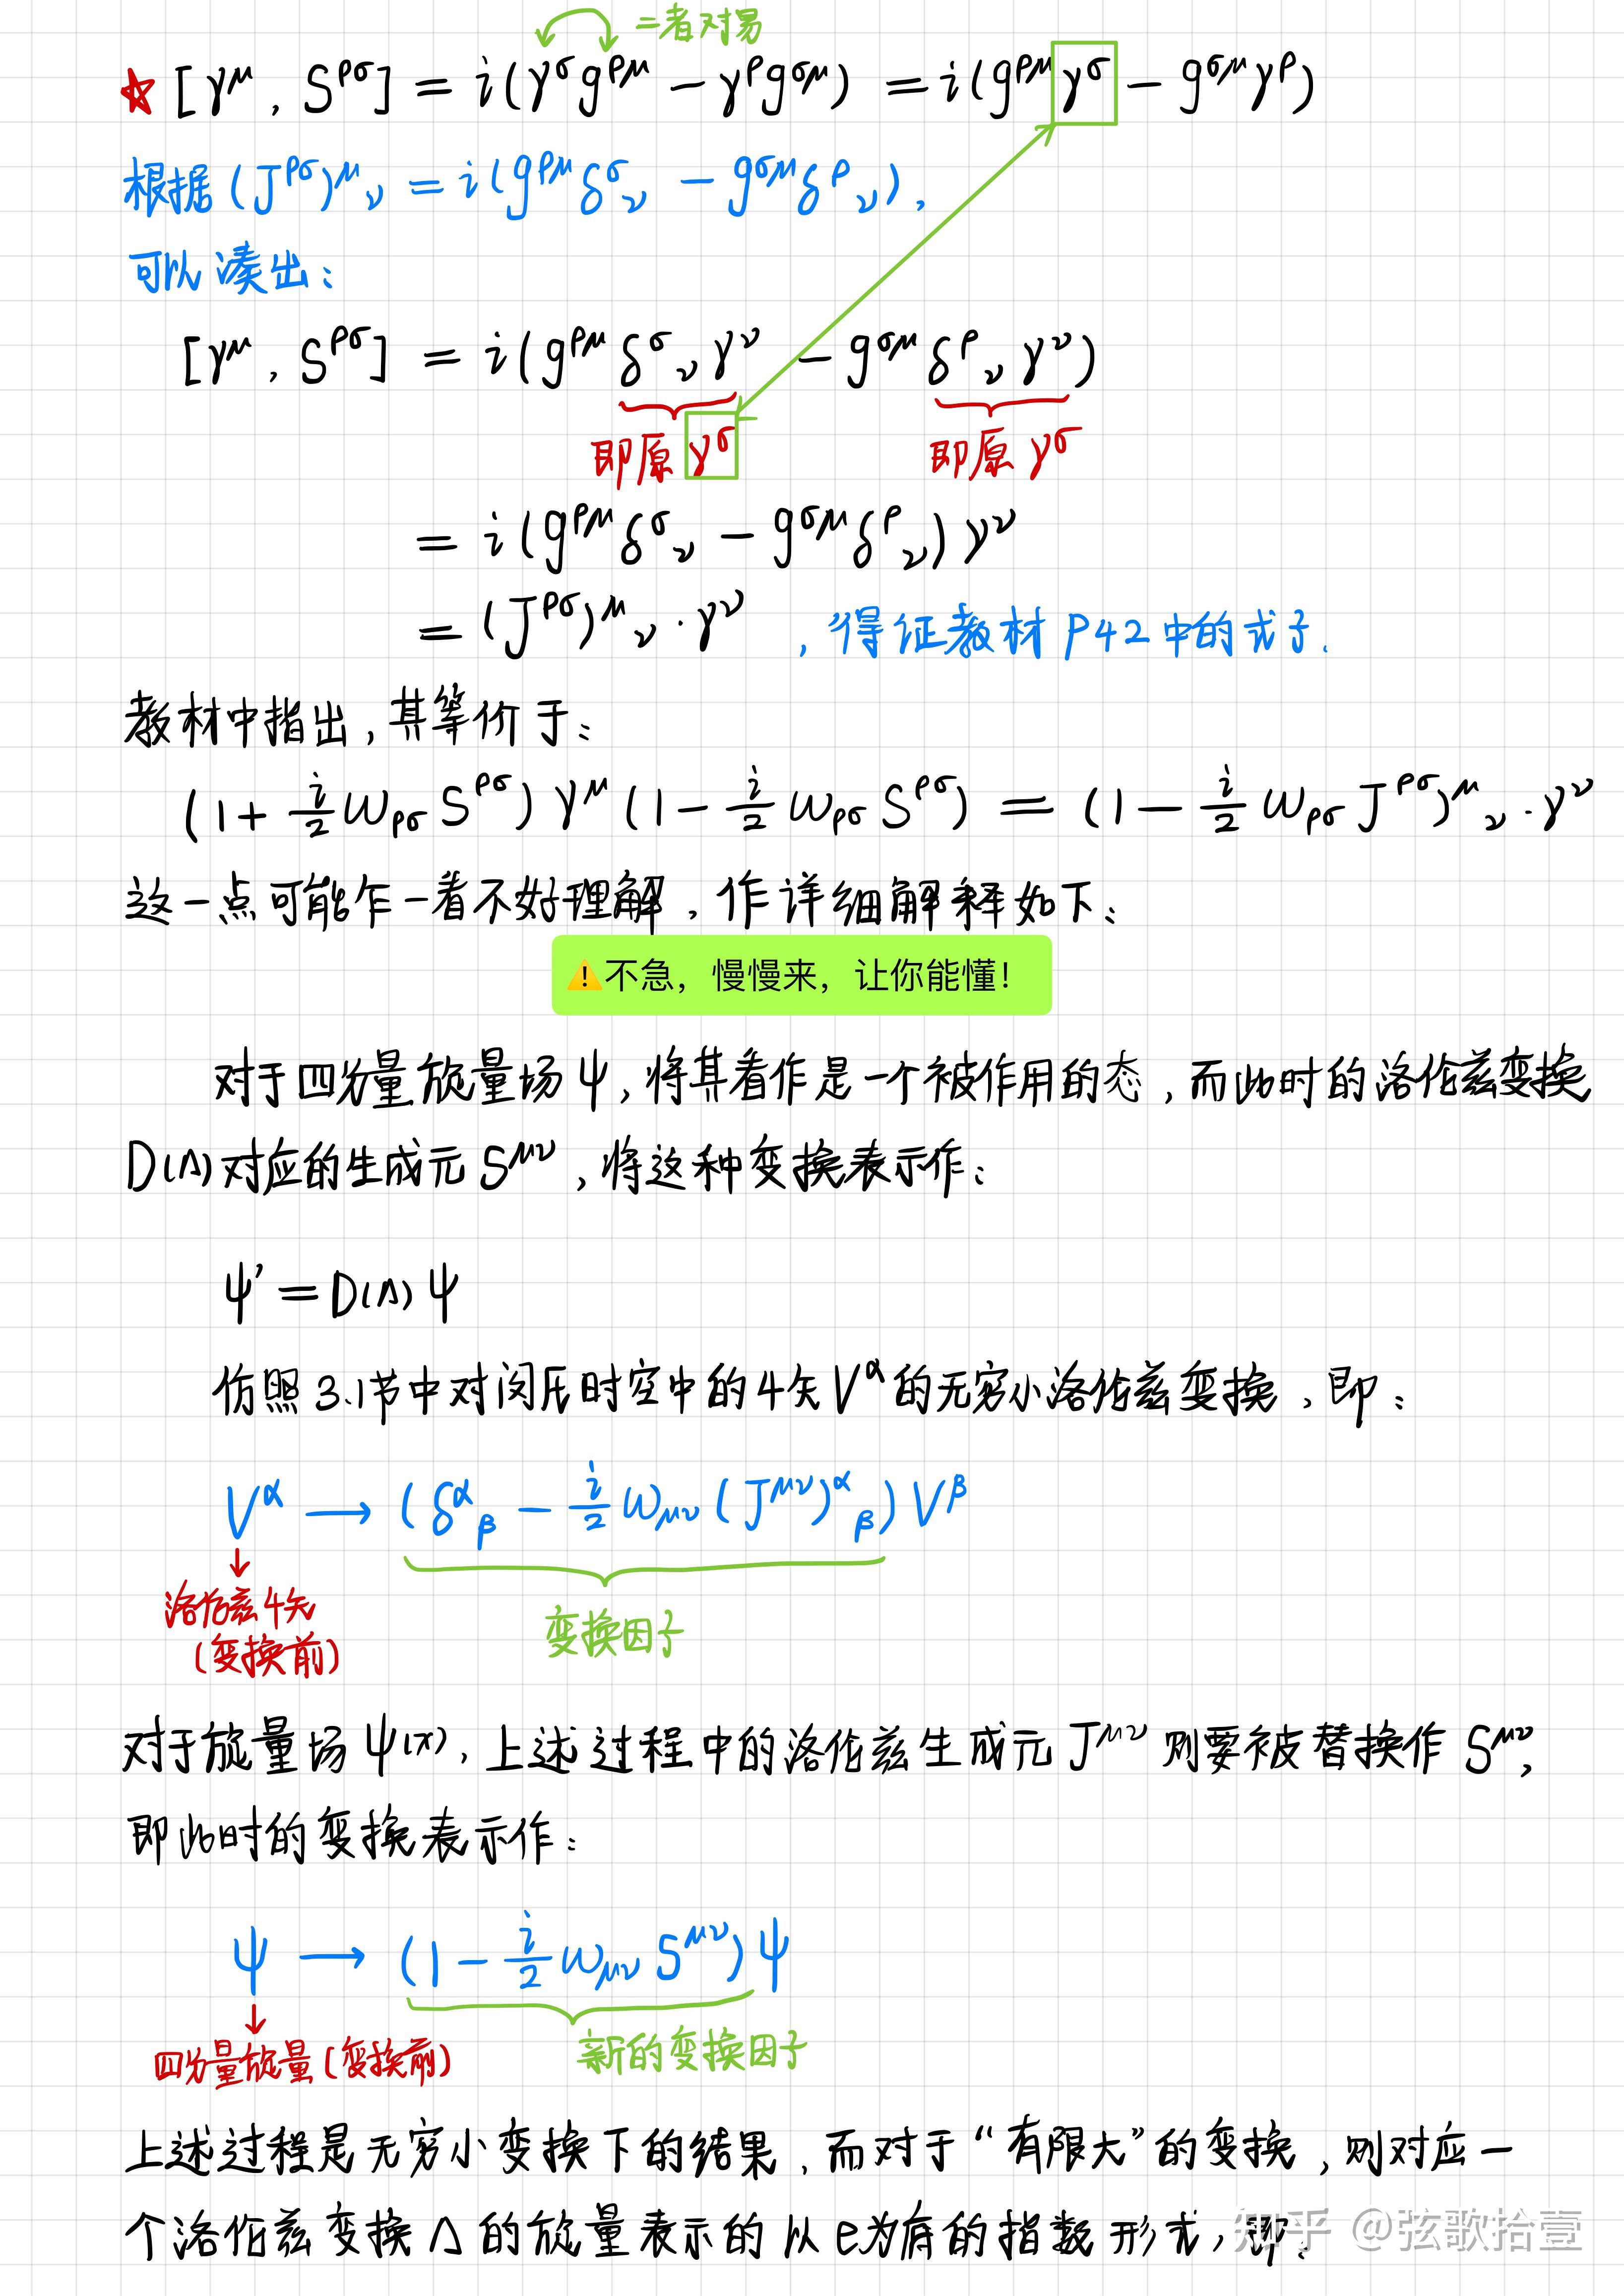 二者对易
★ [γ^μ, S^{ρσ}] = i(γ^σ g^{ρμ} − γ^ρ g^{σμ}) = i(g^{ρμ} γ^σ − g^{σμ} γ^ρ)
根据 (J^{ρσ})^μ_ν = i(g^{ρμ} δ^σ_ν − g^{σμ} δ^ρ_ν),
可以凑出:
[γ^μ, S^{ρσ}] = i(g^{ρμ} δ^σ_ν γ^ν − g^{σμ} δ^ρ_ν γ^ν)
即原 γ^σ 即原 γ^σ
= i(g^{ρμ} δ^σ_ν − g^{σμ} δ^ρ_ν) γ^ν
= (J^{ρσ})^μ_ν · γ^ν , 得证教材 P42 中的式子.
教材中指出, 其等价于:
(1 + i/2 ω_{ρσ} S^{ρσ}) γ^μ (1 − i/2 ω_{ρσ} S^{ρσ}) = (1 − i/2 ω_{ρσ} J^{ρσ})^μ_ν · γ^ν
这一点可能乍一看不好理解, 作详细解释如下:
⚠️不急，慢慢来，让你能懂！
对于四分量旋量场 ψ, 将其看作是一个被作用的态, 而此时的洛伦兹变换
D(Λ) 对应的生成元 S^{μν}, 将这种变换表示作:
ψ' = D(Λ) ψ
仿照 3.1节中对闵氏时空中的4矢 V^α 的无穷小洛伦兹变换, 即:
V^α ⟶ (δ^α_β − i/2 ω_{μν} (J^{μν})^α_β) V^β
洛伦兹4矢
(变换前)
变换因子
对于旋量场 ψ(x), 上述过程中的洛伦兹生成元 J^{μν} 则要被替换作 S^{μν},
即此时的变换表示作:
ψ ⟶ (1 − i/2 ω_{μν} S^{μν}) ψ
四分量旋量 (变换前)
新的变换因子
上述过程是无穷小变换下的结果, 而对于 “有限大” 的变换, 则对应一
个洛伦兹变换 Λ 的旋量表示的以 e为底的指数形式, 即:
知乎 @弦歌拾壹